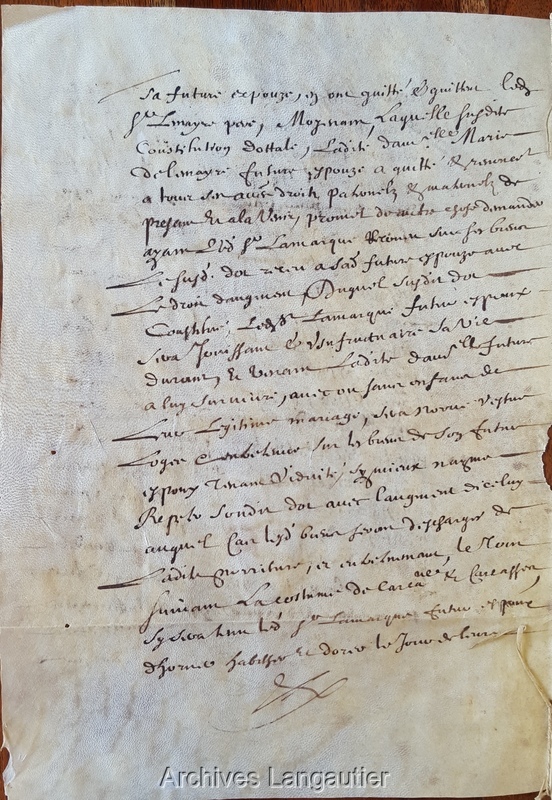 sa future expouze, et ont quitté & quittent led
sr Lmayre pere, Moyenant laquelle susdite
Constitution dottale, Ladite damlle Marie
delemayre future expouze a quitté & renoncé
a tous ses autres droits paternelz & maternelz de
present et alavenir, promet de autre choze demander
ayant led sr Lamarque sur ses biens
Le susd. dot receu asad. future expouze avec
Le droit daugment Duquel susdit dot
Constitué, Ledsr Lamarque futur expoux
sera Jouissant & Usufruituaire sa vie
durant, & venant Ladite damlle future
a luy survivre, avec ou sans enfans de
Leur Legitime mariage, sera Norrie Vestue
Logée & entretenue sur les biens de son futur
expoux tenant Viduité, sy mieux nayme
Repeter sondit dot avec laugment diceluy
auquel Cas lesd biens seront deschargés de
Ladite norriture, et entretenement, le tout
suivant La costume de Carcassonne
sy sera tenu led. sr Lamarque futur expoux
dhorner habilher & dorer le Jour de leurs
Archives Langautier